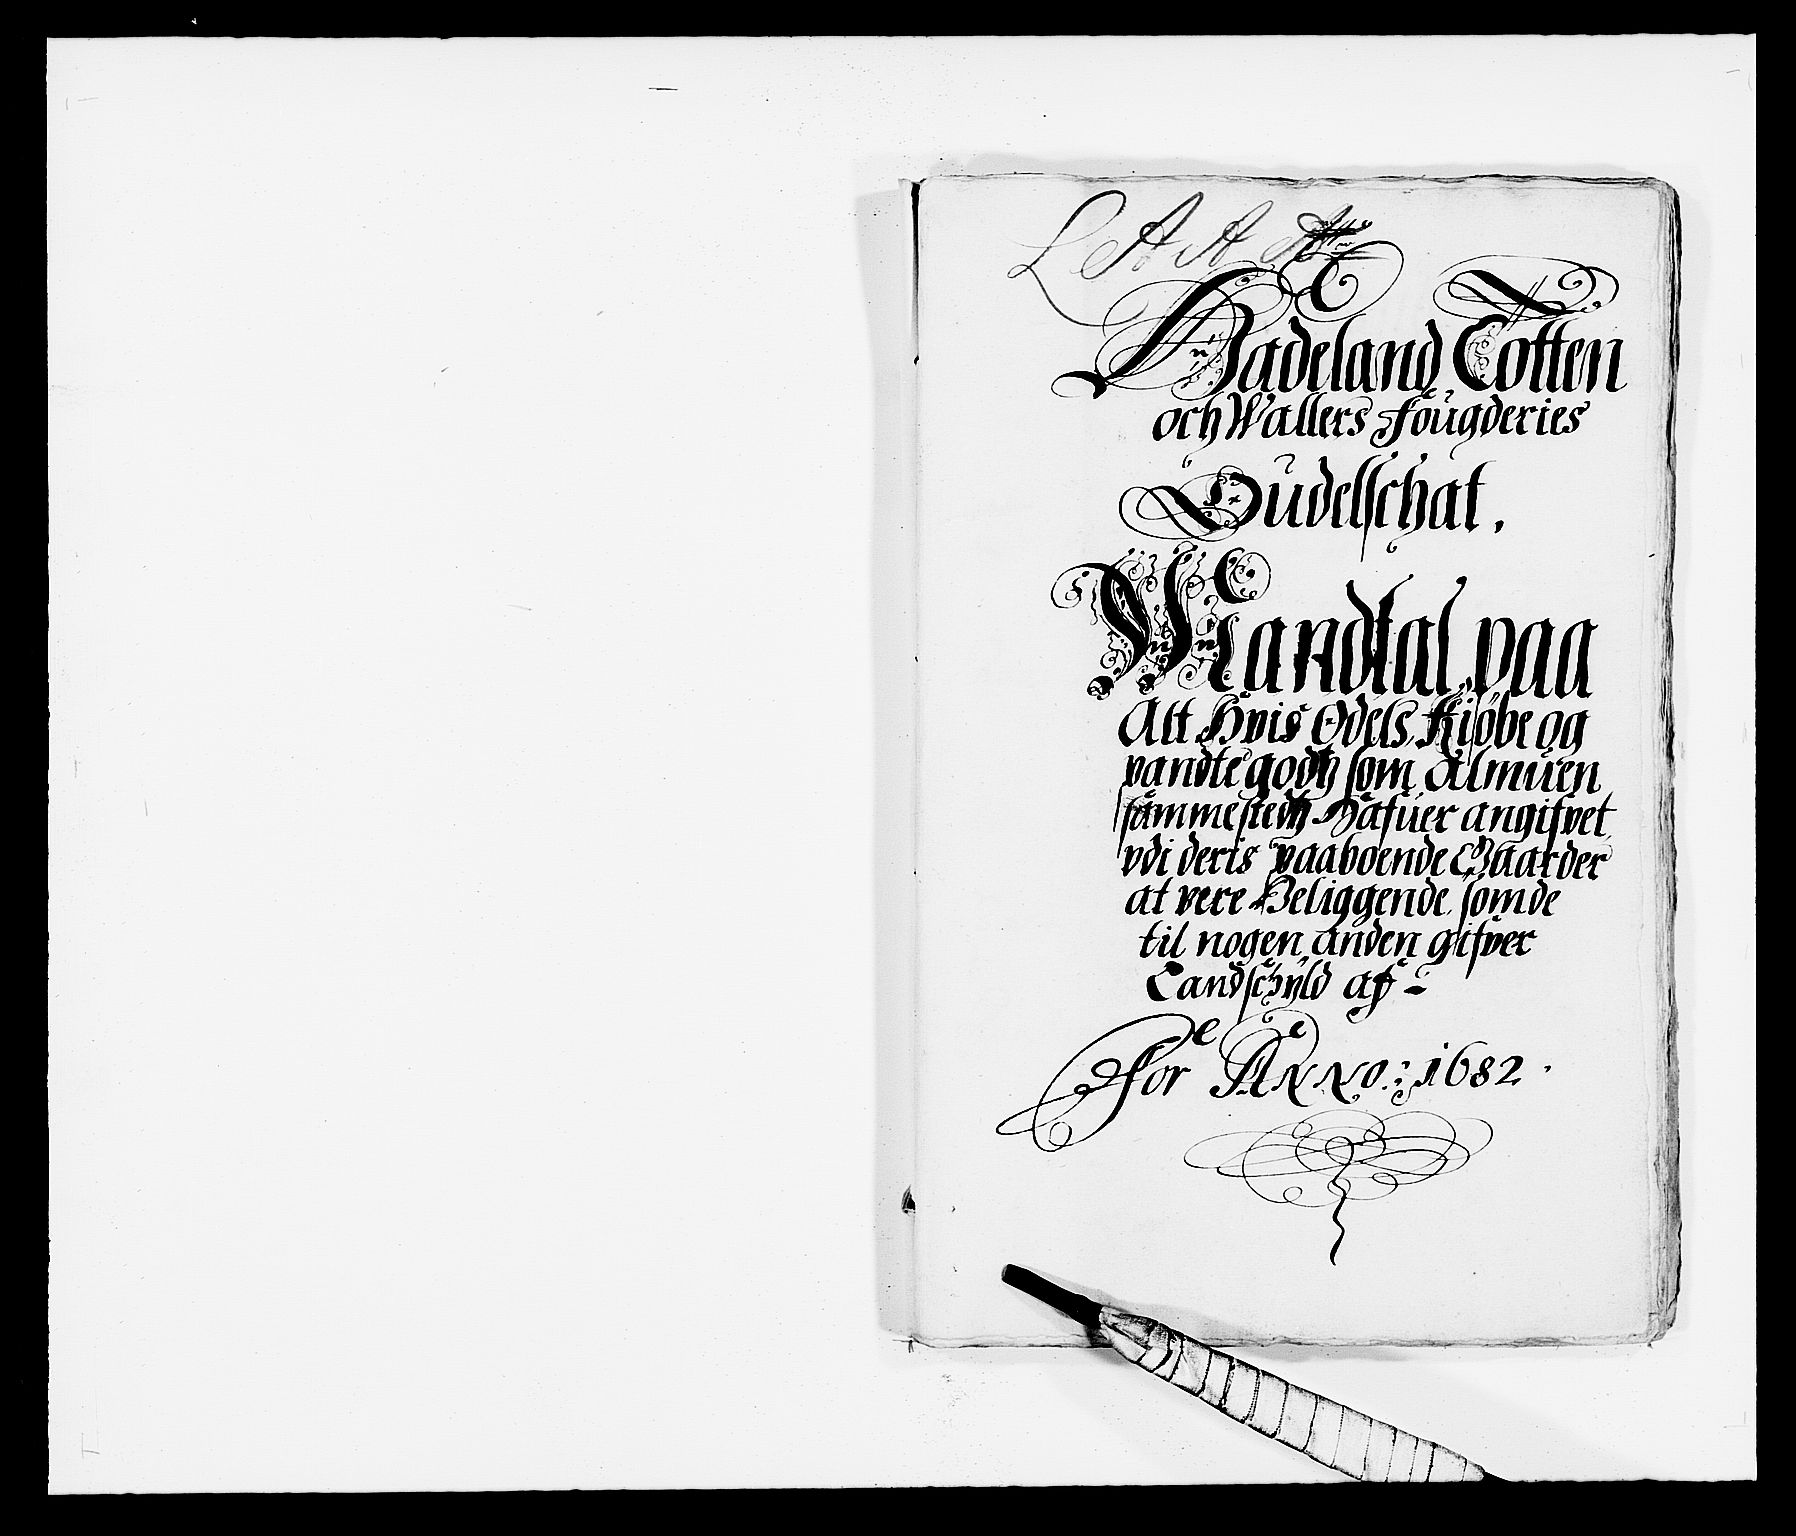 L A A A
Hadeland Totten
och Wallers fougderies
Oudelschat.
Mandtal paa
Alt Hvis Odels, Kiøbe og
pandte godtz som Almuen
sammestedtz Hafuer angifvet
vdi deris paaboende Gaarder
at vere Beliggende, som de
til nogen anden gifver
Landschyld af
for ANNO: 1682.